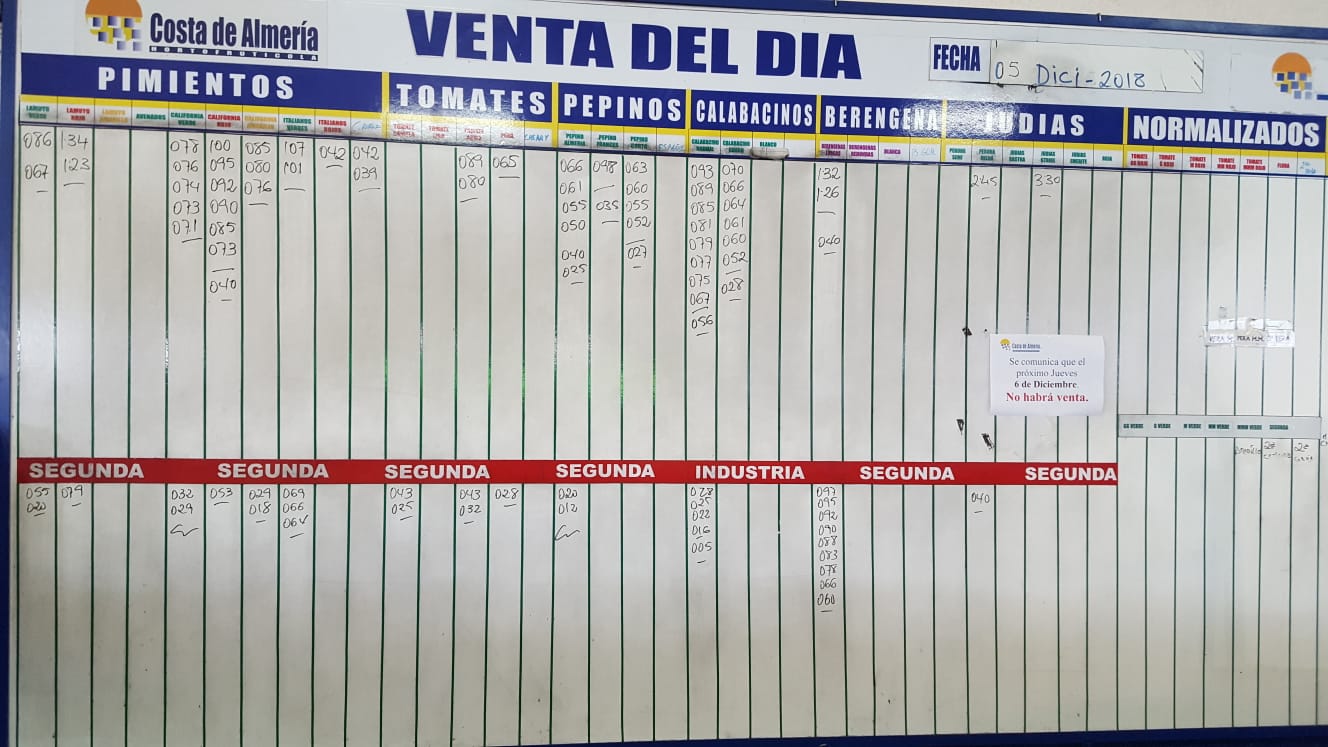 Costa de Almería
HORTOFRUTICOLA
VENTA DEL DIA
FECHA 05 Dici-2018
PIMIENTOS TOMATES PEPINOS CALABACINOS BERENGENA JUDIAS NORMALIZADOS
LAMUYO VERDE LAMUYO ROJO LAMUYO AMARILLO ASURCADOS CALIFORNIA VERDE CALIFORNIA ROJO CALIFORNIA AMARILLO ITALIANOS VERDES ITALIANOS ROJOS
PERA CHERRY PEPINO ALMERIA PEPINO FRANCES PEPINO CORTO CALABACINO CALABACINO GORDO BLANCO
BERENGENAS LARGAS BERENGENAS REDONDAS BLANCA PERONA ROJA JUDIAS RASTRA JUDIAS STRIKE ROJA
TOMATE GG ROJO TOMATE G ROJO TOMATE M ROJO TOMATE MM ROJO TOMATE MMM ROJO FLORA
086 134 078 100 085 107 042 042 089 065 066 098 063 093 070 132 245 330
067 123 076 095 080 101 039 080 061 060 089 066 126
074 092 076 055 035 055 085 064
073 090 050 052 081 061
071 085 079 060 040
073 040 027 077 052
040 025 075 028
067
056
Costa de Almería
Se comunica que el
próximo Jueves
6 de Diciembre.
No habrá venta.
GG VERDE G VERDE M VERDE MM VERDE MMM VERDE SEGUNDA
SEGUNDA SEGUNDA SEGUNDA SEGUNDA INDUSTRIA SEGUNDA SEGUNDA
055 079 032 053 029 069 043 043 028 020 028 097 040
020 029 018 066 025 032 012 025 095
064 022 092
016 090
005 088
083
078
066
060